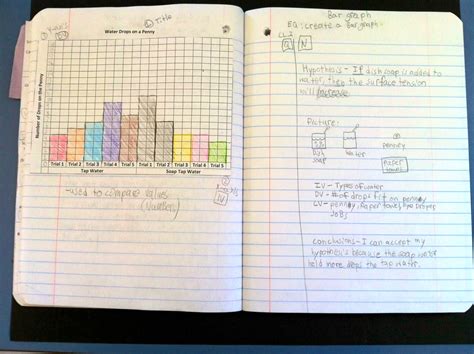 Title
Y-axis
Water Drops on a Penny
Number of Drops on the Penny
Trial 1 Trial 2 Trial 3 Trial 4 Trial 5 Trial 1 Trial 2 Trial 3 Trial 4 Trial 5
Tap Water Soap Tap Water
-used to compare values
(Numbers)
IV
Bar graph
EQ: create a bar graph
N
Hypothesis - If dish soap is added to
water, then the surface tension
will increase
Picture:
Dish
soap
water
penney
Paper
towel
IV - Types of water
DV - # of drops fit on penney
CV - penney, Paper towel, eye droper
Conclusions - I can accept my
hypothesis because the soap water
held more drops the tap water.